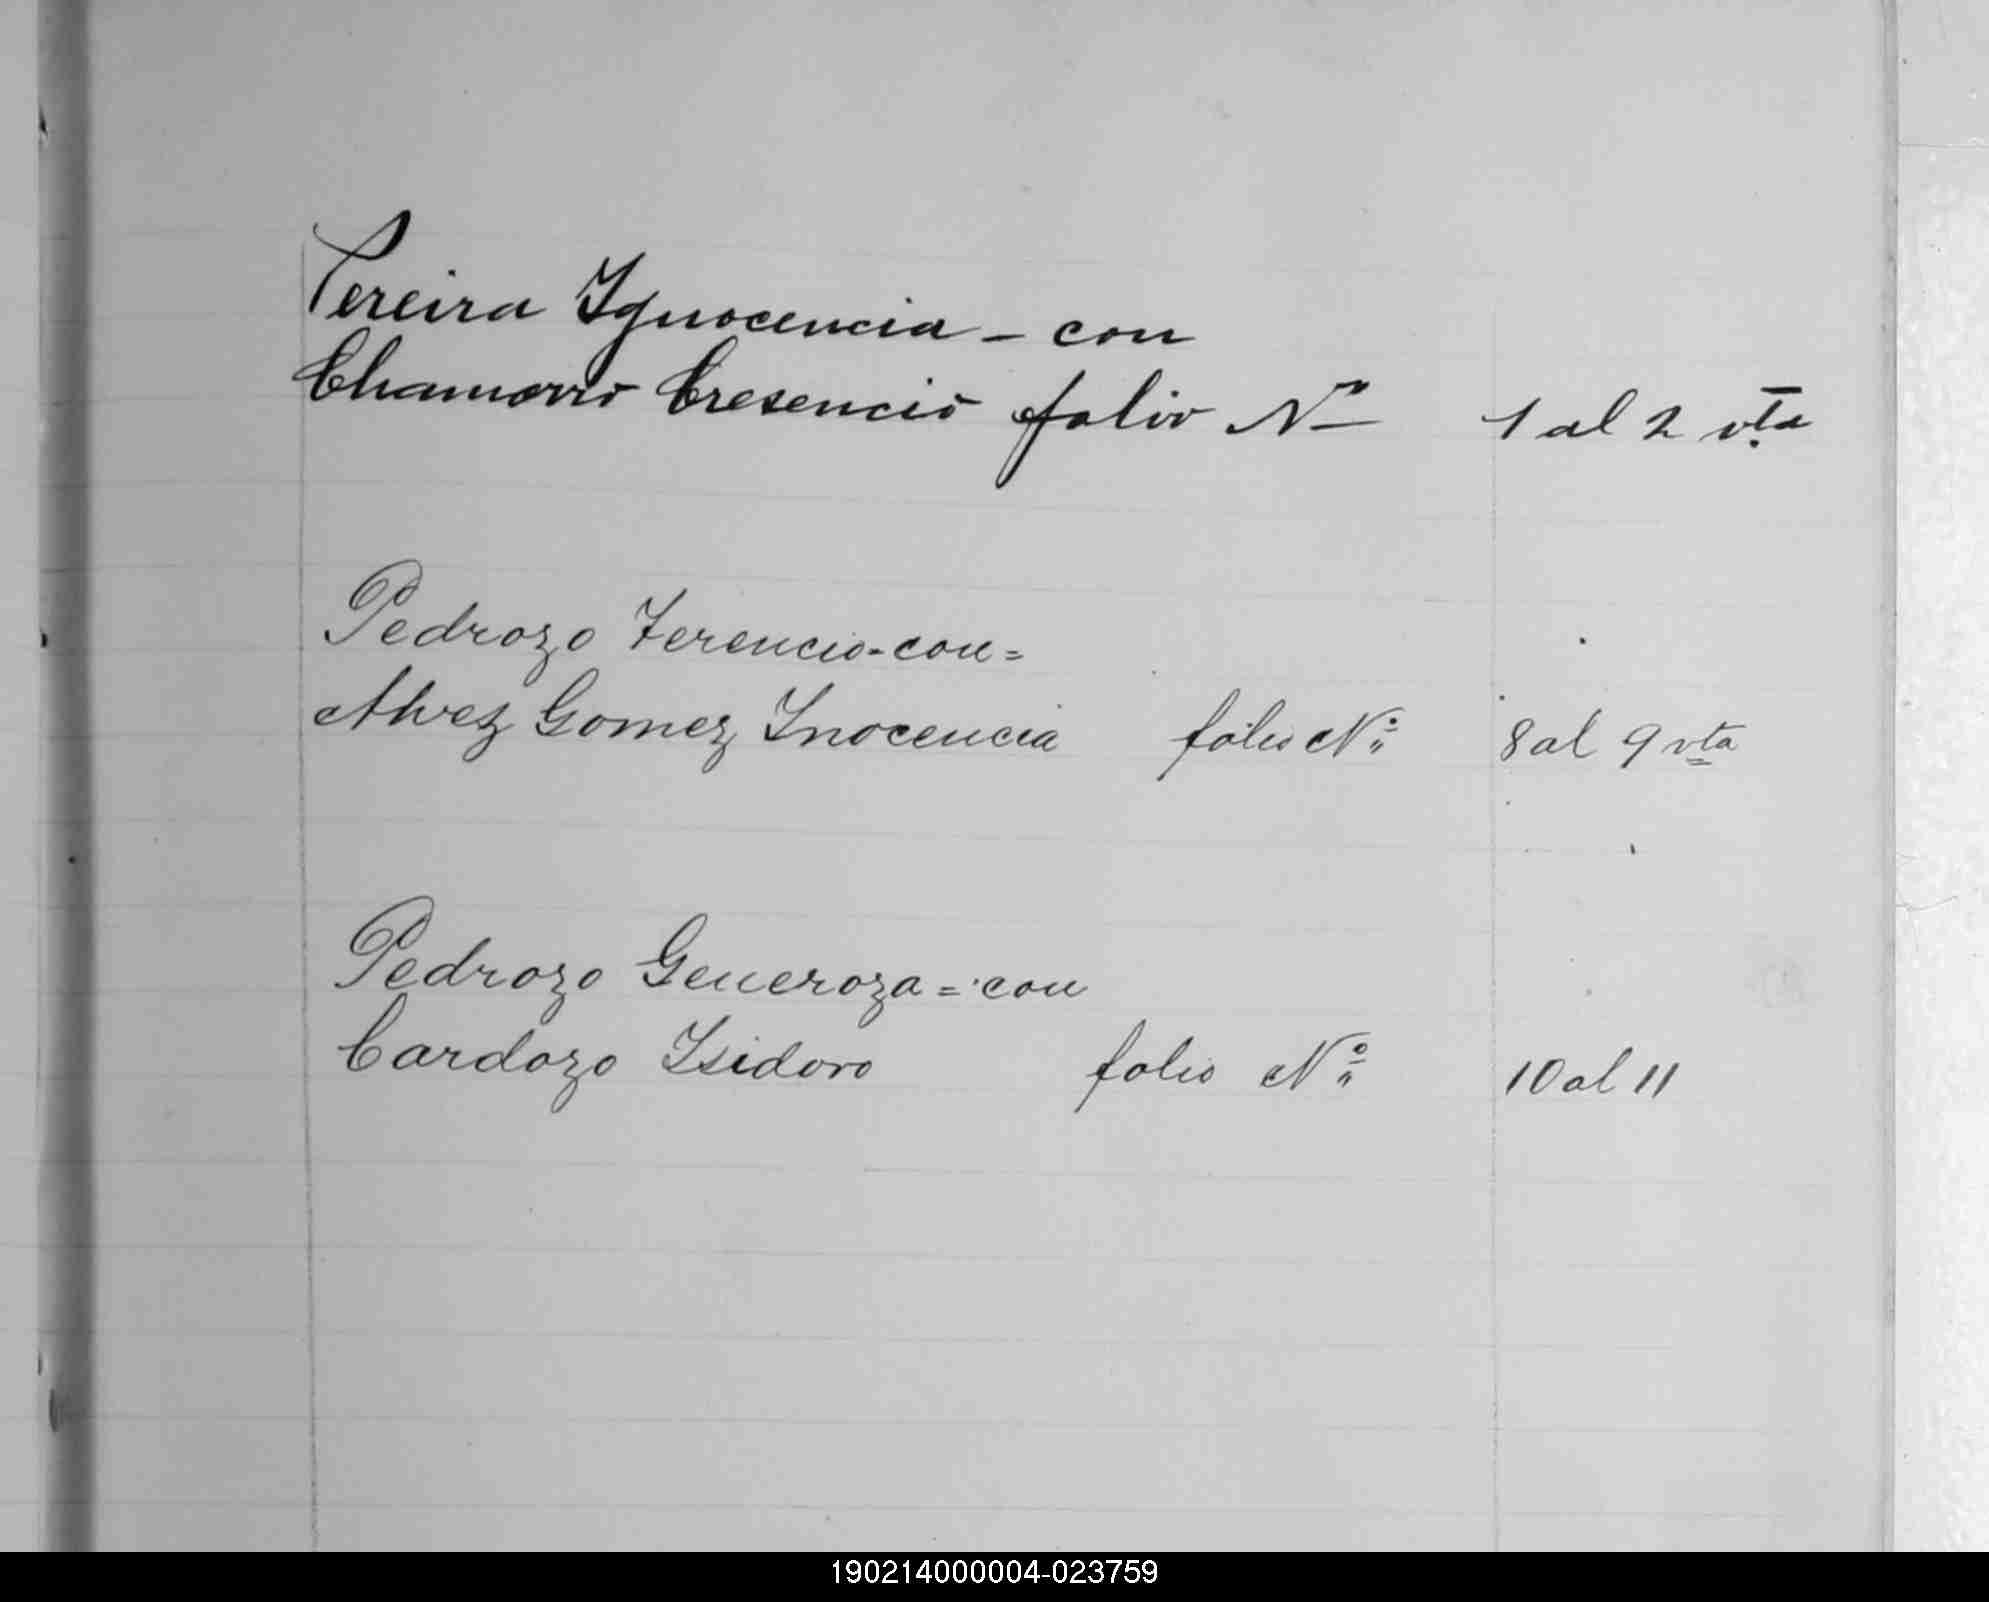 Pereira Ignocencia - con
Chamorro Cresencio folio Nº 1 al 2 vta
Pedrozo Terencio - con =
Alvez Gomez Inocencia folio Nº 8 al 9 vta
Pedrozo Generoza = con
Cardozo Isidoro folio Nº 10 al 11
190214000004-023759